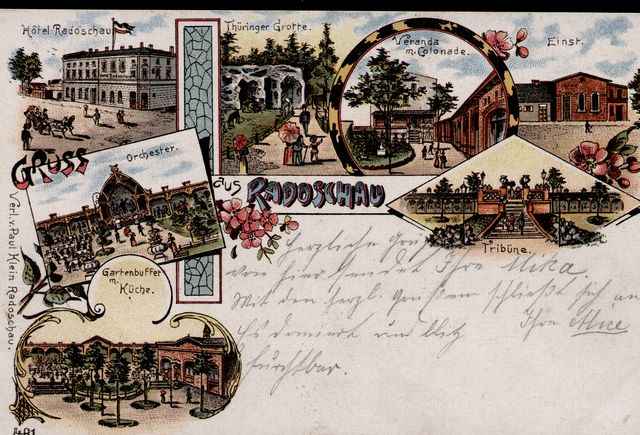 Hôtel Radoschau
Thüringer Grotte.
Veranda
m. Colonade.
Einst.
Orchester.
GRUSS
aus RADOSCHAU
Tribüne.
Gartenbuffet
m.
Küche.
Verl. v. Paul Klein Radoschau.
Herzliche Grüße
von hier sendet Ihre Mika.
Mit den herzl. Grüßen schließt sich an
Ihre Alice
Es donnert und blitzt
furchtbar.
481